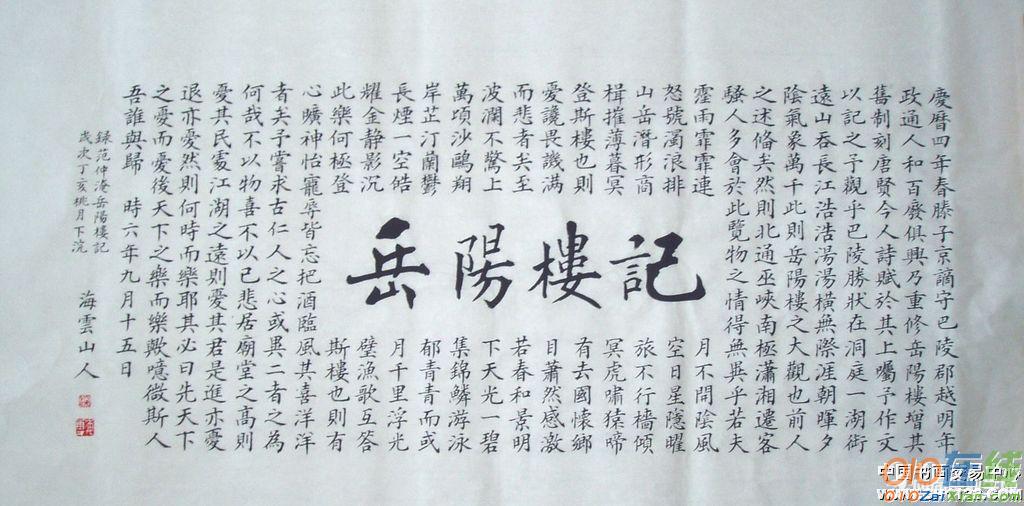 慶曆四年春滕子京謫守巴陵郡越明年
政通人和百廢俱興乃重修岳陽樓增其
舊制刻唐賢今人詩賦於其上囑予作文
以記之予觀乎巴陵勝狀在洞庭一湖銜
遠山吞長江浩浩湯湯橫無際涯朝暉夕
陰氣象萬千此則岳陽樓之大觀也前人
之述備矣然則北通巫峽南極瀟湘遷客
騷人多會於此覽物之情得無異乎若夫
霪雨霏霏連月不開陰風
怒號濁浪排空日星隱曜
山岳潛形商旅不行檣傾
楫摧薄暮冥冥虎嘯猿啼
登斯樓也則有去國懷鄉
憂讒畏譏滿目蕭然感激
而悲者矣至若春和景明
波瀾不驚上下天光一碧
萬頃沙鷗翔集錦鱗游泳
岸芷汀蘭鬱郁青青而或
長煙一空皓月千里浮光
耀金静影沉璧漁歌互答
此樂何極登斯樓也則有
岳陽樓記
心曠神怡寵辱皆忘把酒臨風其喜洋洋
者矣予嘗求古仁人之心或異二者之為
何哉不以物喜不以己悲居廟堂之高則
憂其民處江湖之遠則憂其君是進亦憂
退亦憂然則何時而樂耶其必曰先天下
之憂而憂後天下之樂而樂歟噫微斯人
吾誰與歸 時六年九月十五日
錄范仲淹岳陽樓記
歲次丁亥桃月下浣
海雲山人
中国书画交易中心
oioZaiXian.com